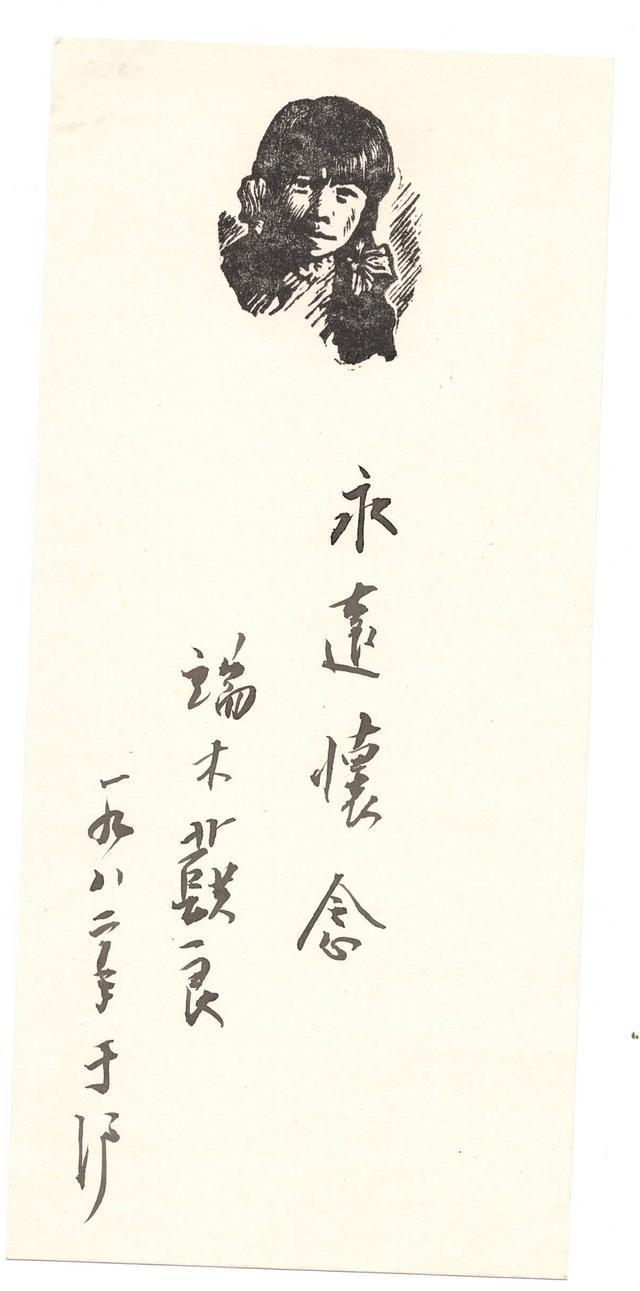 永遠懷念
端木蕻良
一九八二年于沪